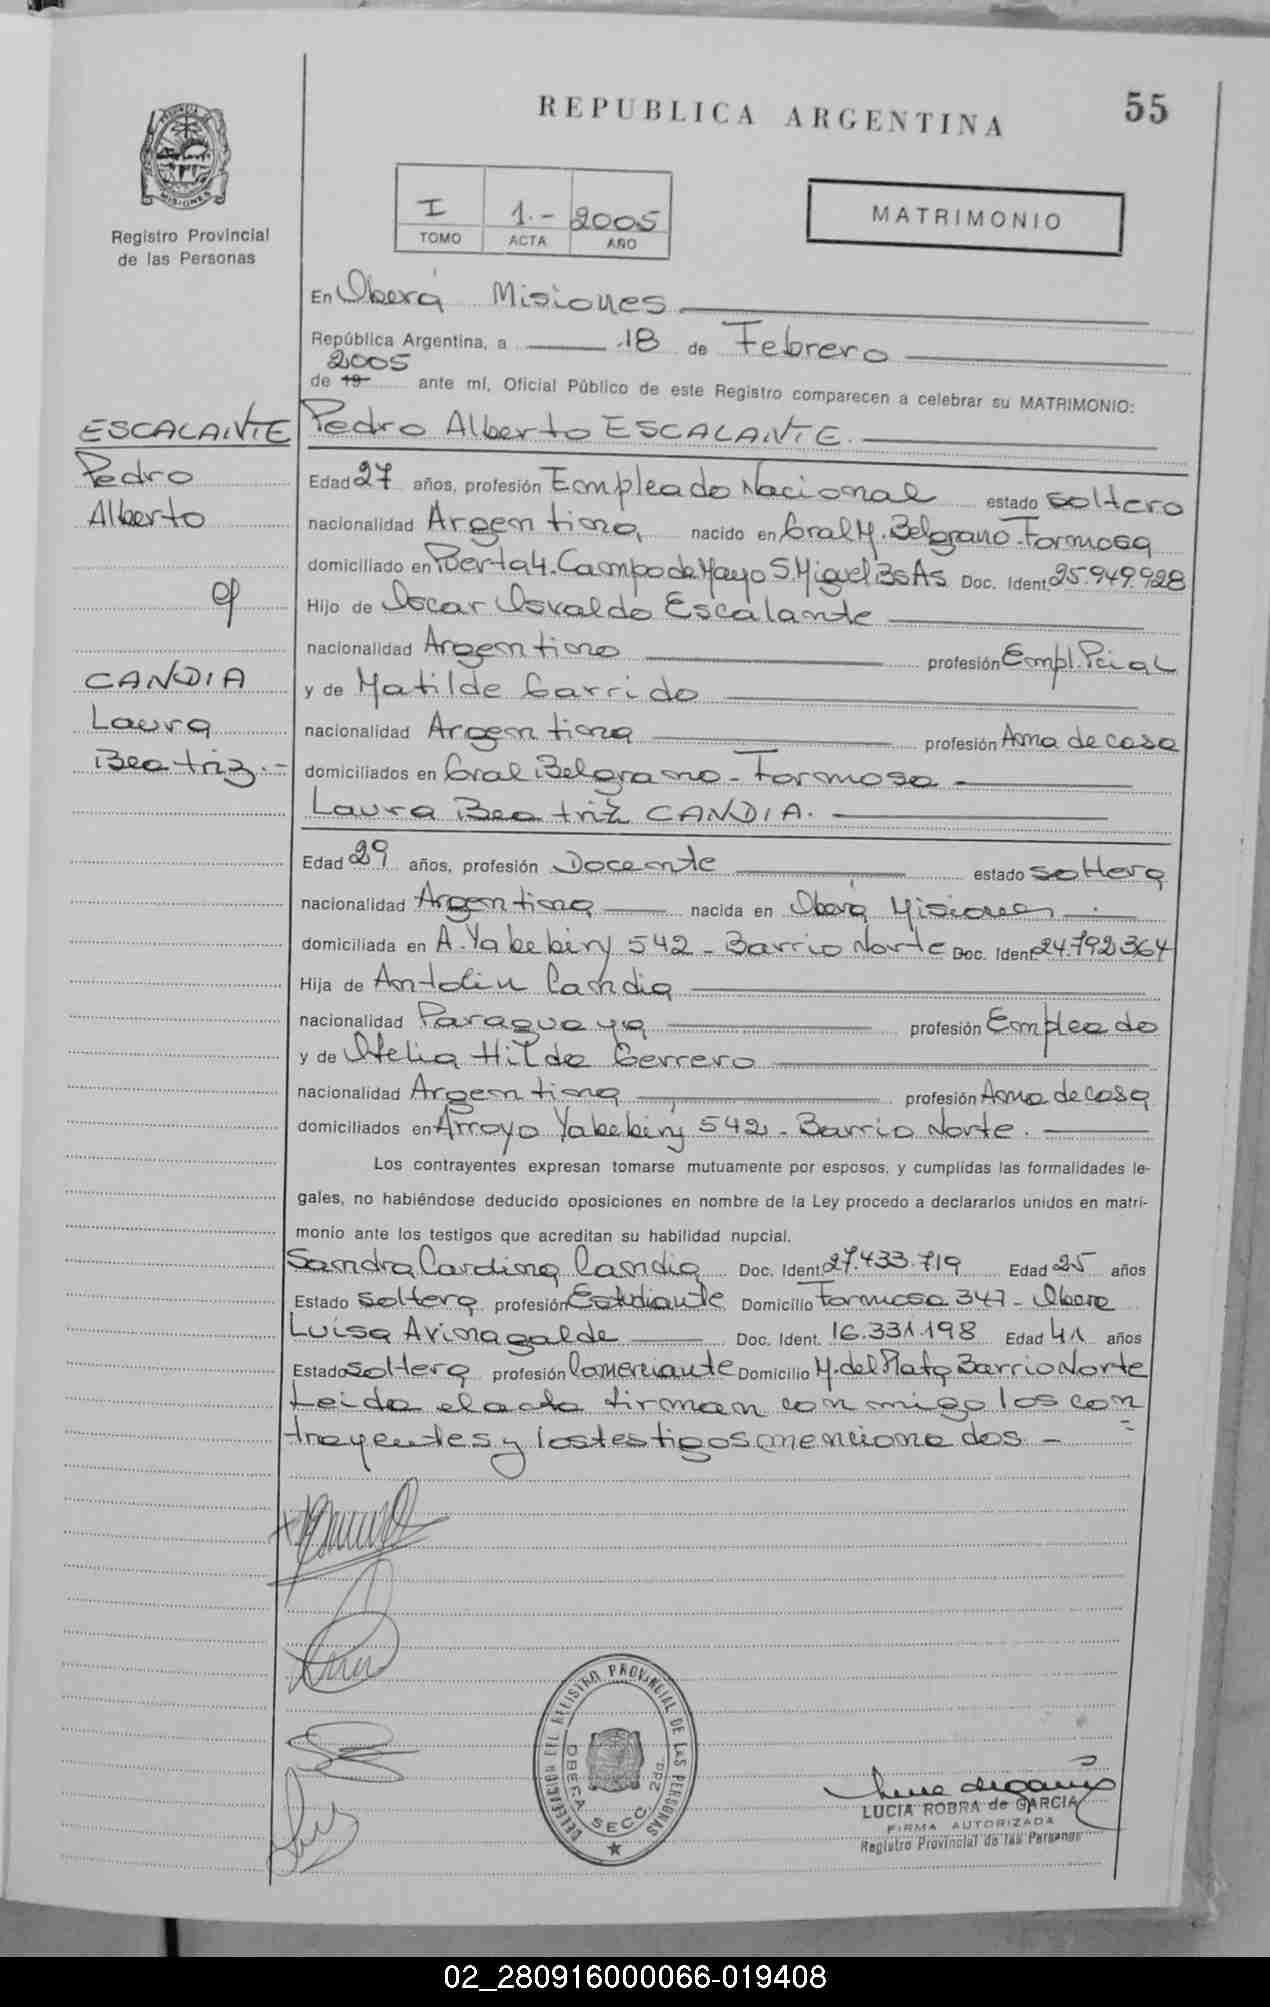 55
REPUBLICA ARGENTINA
PROVINCIA DE MISIONES
Registro Provincial
de las Personas
I 1.- 2005
TOMO ACTA AÑO
MATRIMONIO
En Oberá Misiones
República Argentina, a 18 de Febrero
2005
de 19 ante mí, Oficial Público de este Registro comparecen a celebrar su MATRIMONIO:
ESCALANTE
Pedro
Alberto
c/
CANDIA
Laura
Beatriz.-
Pedro Alberto ESCALANTE.
Edad 27 años, profesión Empleado Nacional estado soltero
nacionalidad Argentina, nacido en Gral M. Belgrano-Formosa
domiciliado en Puerta 4. Campo de Mayo S. Miguel Bs As Doc. Ident. 25.949.928
Hijo de Oscar Osvaldo Escalante
nacionalidad Argentino profesión Empl. Pcial
y de Matilde Garrido
nacionalidad Argentina profesión Ama de casa
domiciliados en Gral Belgrano - Formosa
Laura Beatriz CANDIA.
Edad 29 años, profesión Docente estado soltera
nacionalidad Argentina nacida en Oberá Misiones
domiciliada en A. Yabebiry 542 - Barrio Norte Doc. Ident 24.792364
Hija de Antolin Candia
nacionalidad Paraguaya profesión Empleado
y de Otelia Hilda Gerrero
nacionalidad Argentina profesión Ama de casa
domiciliados en Arroyo Yabebiry 542 - Barrio Norte.
Los contrayentes expresan tomarse mutuamente por esposos, y cumplidas las formalidades le-
gales, no habiéndose deducido oposiciones en nombre de la Ley procedo a declararlos unidos en matri-
monio ante los testigos que acreditan su habilidad nupcial.
Sandra Cardina Candia Doc. Ident. 27.433.719 Edad 25 años
Estado soltera profesión Estudiante Domicilio Formosa 347 - Obera
Luisa Avinagalde Doc. Ident. 16.331.198 Edad 41 años
Estado soltera profesión Comerciante Domicilio M. del Plata Barrio Norte
Leida el acta firman con migo los con
=
trayentes y los testigos mencionados -
DELEGACION DEL REGISTRO PROVINCIAL DE LAS PERSONAS
OBERA SECC. 2da.
LUCIA ROBRA de GARCIA
FIRMA AUTORIZADA
Registro Provincial de las Personas
02_280916000066-019408